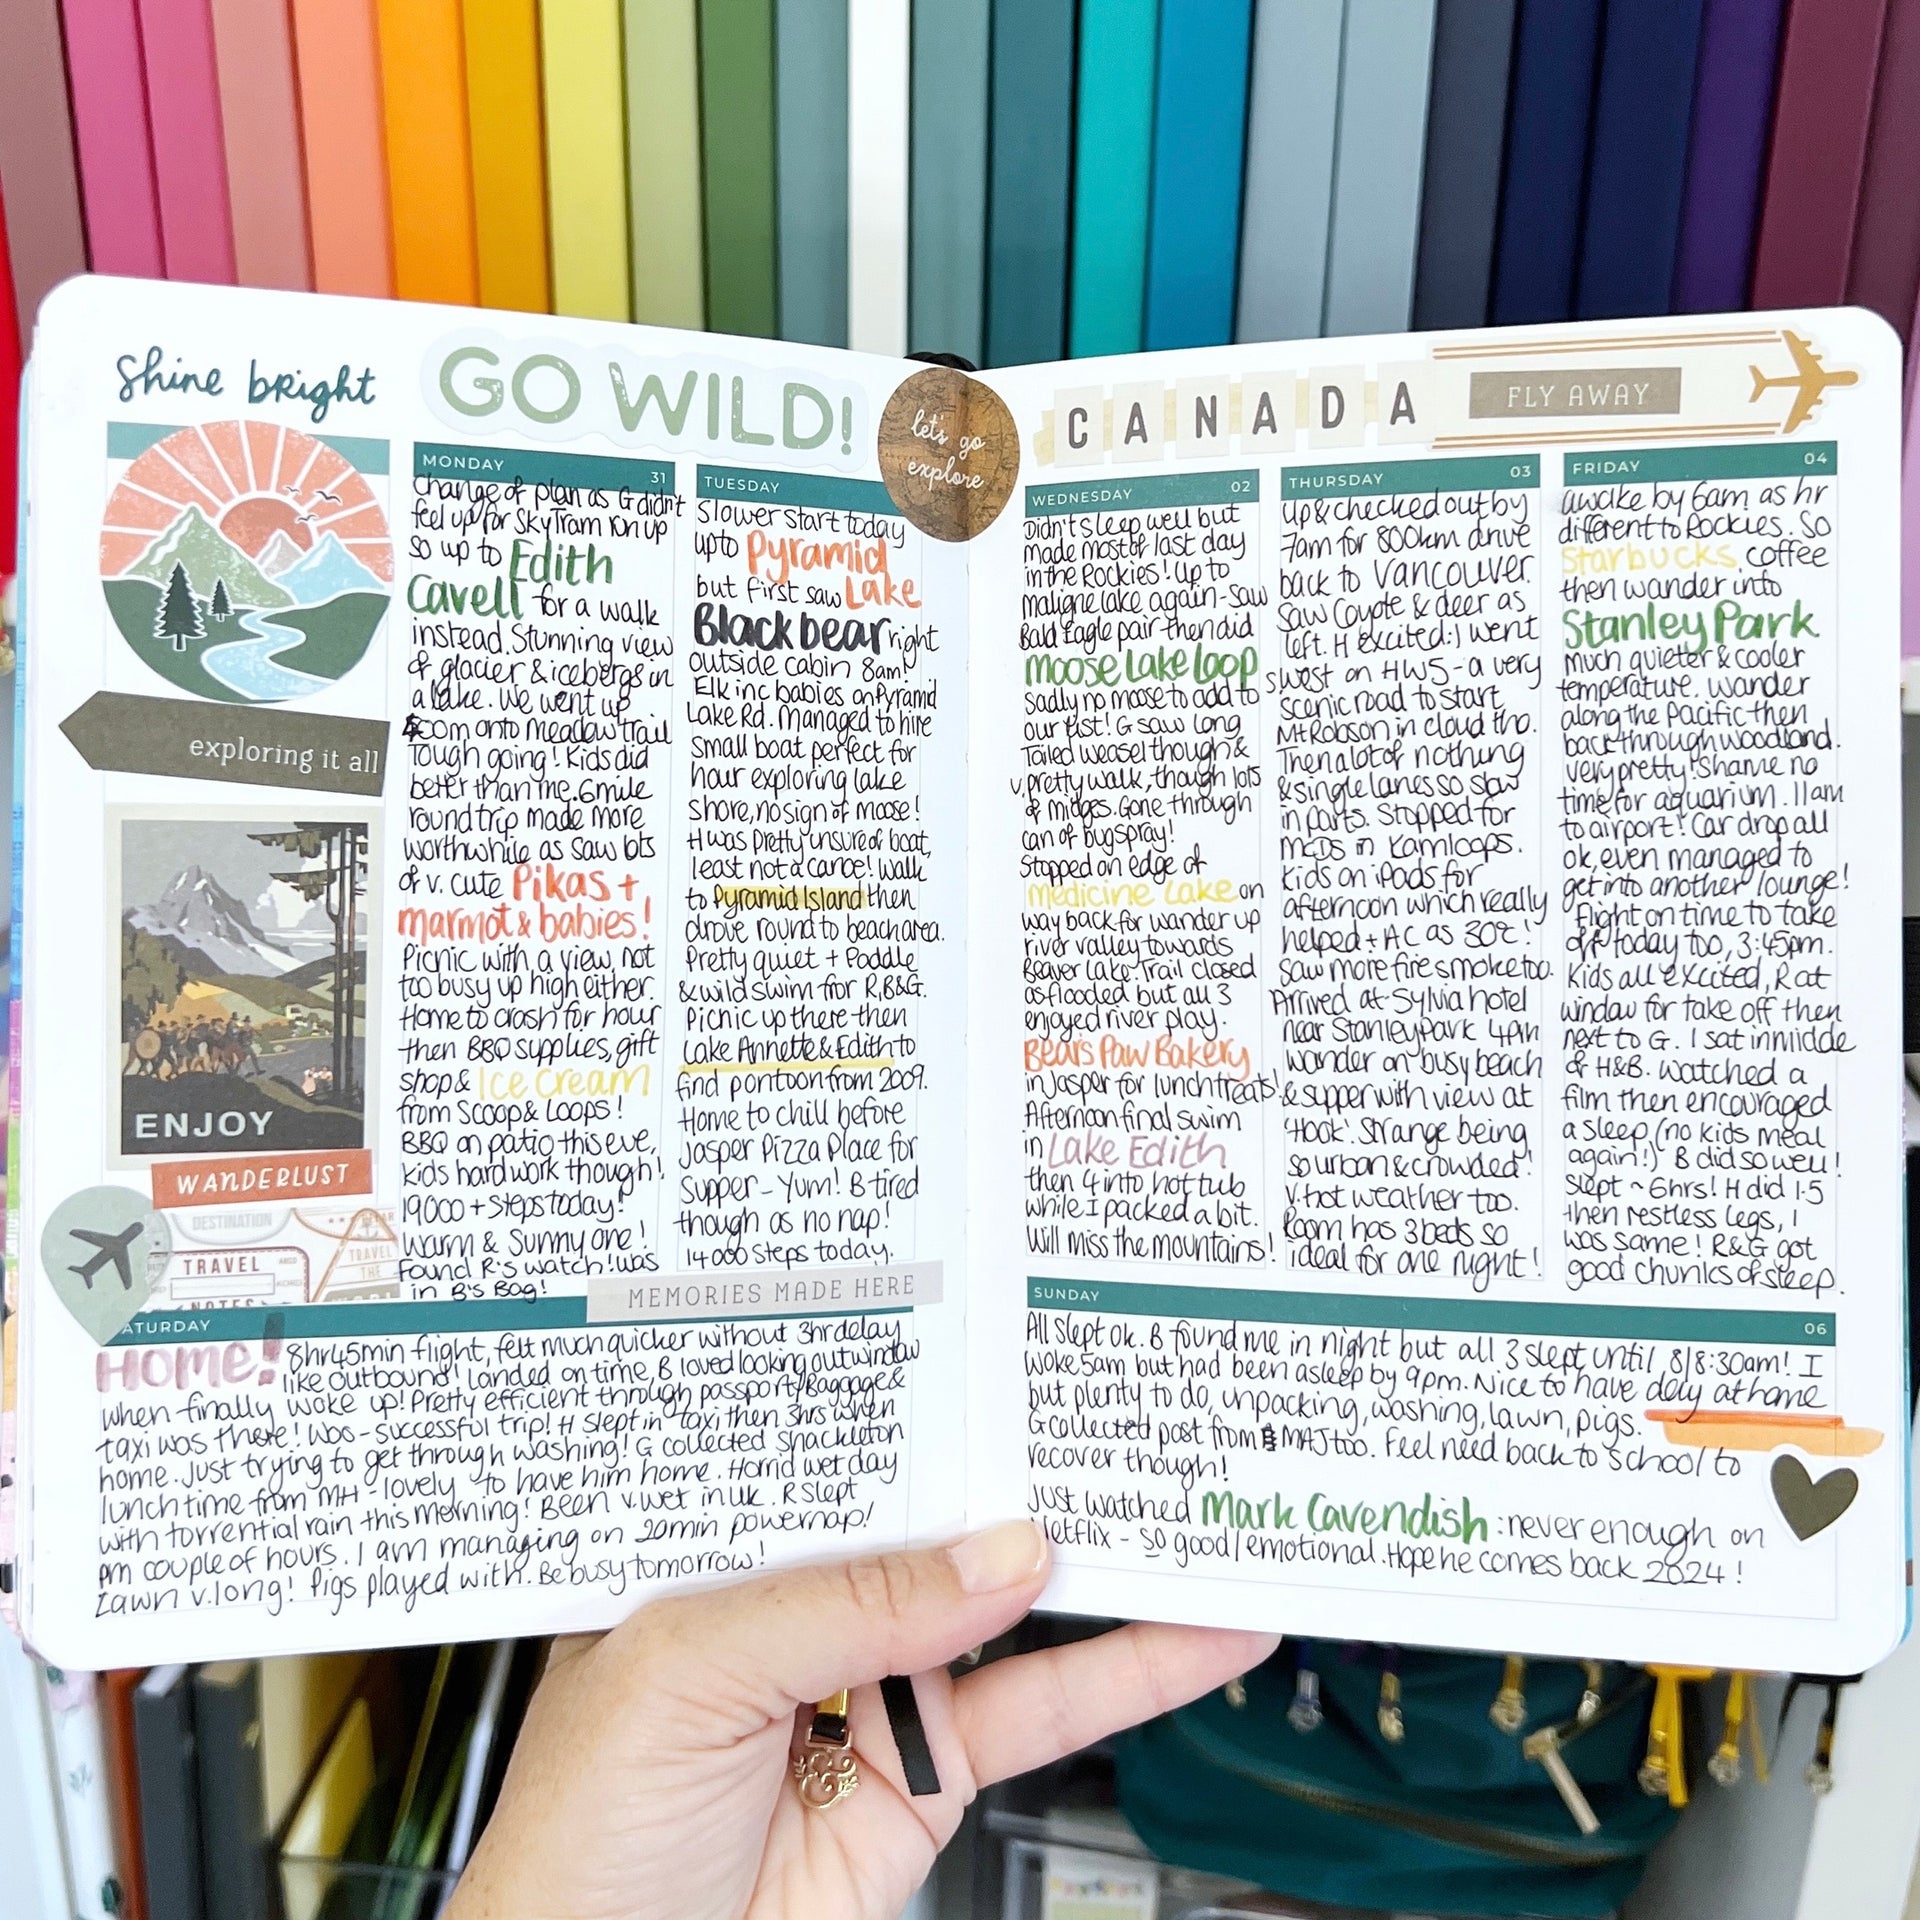 Shine bright
GO WILD!
let's go
explore
CANADA
FLY AWAY
exploring it all
ENJOY
WANDERLUST
DESTINATION
TRAVEL
TRAVEL
THE
NOTES
MONDAY 31
Change of plan as G didn't
feel up for SkyTram run up
so up to Edith
Cavell for a walk
instead. Stunning view
of glacier & icebergs in
a lake. We went up
400m onto meadow trail
Tough going! Kids did
better than me. 6mile
round trip made more
worthwhile as saw lots
of v. cute Pikas +
marmot & babies!
Picnic with a view, not
too busy up high either.
Home to crash for hour
then BBQ supplies, gift
shop & Ice cream
from Scoop & Loops!
BBQ on patio this eve,
kids hard work though!
19000 + steps today!
Warm & sunny one!
Found R's watch! was
in B's Bag!
TUESDAY
Slower start today
up to Pyramid
but first saw Lake
Black bear right
outside cabin 8am!
Elk inc babies on Pyramid
Lake Rd. Managed to hire
small boat perfect for
hour exploring lake
shore, no sign of moose!
H was pretty unsure of boat,
least not a canoe! Walk
to Pyramid Island then
drove round to beach area.
Pretty quiet + Paddle
& wild swim for R, B & G.
Picnic up there then
Lake Annette & Edith to
find pontoon from 2009.
Home to chill before
Jasper Pizza Place for
supper - Yum! B tired
though as no nap!
14000 steps today.
MEMORIES MADE HERE
WEDNESDAY 02
Didn't sleep well but
made most of last day
in the Rockies! Up to
Maligne lake again - saw
Bald Eagle pair then did
Moose Lake loop
Sadly no moose to add to
our list! G saw Long
Tailed weasel though &
v. pretty walk, though lots
of midges. Gone through
can of bug spray!
Stopped on edge of
Medicine Lake on
way back for wander up
river valley towards
Beaver Lake. Trail closed
as flooded but all 3
enjoyed river play.
Bears Paw Bakery
in Jasper for lunch treats!
Afternoon final swim
in Lake Edith
then 4 into hot tub
while I packed a bit.
Will miss the mountains!
THURSDAY 03
Up & checked out by
7am for 800km drive
back to Vancouver.
Saw Coyote & deer as
left. H excited :) Went
swest on HW5 - a very
scenic road to start
Mt Robson in cloud tho.
Then a lot of nothing
& single lanes so slow
in parts. Stopped for
McDs in Kamloops.
Kids on iPads for
afternoon which really
helped + AC as 30°C!
Saw more fire smoke too.
Arrived at Sylvia hotel
near Stanley Park 4pm
wander on busy beach
& supper with view at
'Hook'. Strange being
so urban & crowded!
V. hot weather too.
Room has 3 beds so
ideal for one night!
FRIDAY 04
awake by 6am as hr
different to Rockies. So
Starbucks coffee
then wander into
Stanley Park
much quieter & cooler
temperature. Wander
along the Pacific then
back through woodland.
very pretty! Shame no
time for aquarium. 11am
to airport! Car drop all
ok, even managed to
get into another lounge!
Flight on time to take
off today too, 3:45pm.
Kids all excited, R at
window for take off then
next to G. I sat in middle
of H&B. Watched a
film then encouraged
a sleep (no kids meal
again!) B did so well!
Slept ~ 6hrs! H did 1.5
then restless legs, I
was same! R&G got
good chunks of sleep.
SATURDAY
HOME! 8hr45min flight, felt much quicker without 3hr delay
like outbound! Landed on time, B loved looking out window
when finally woke up! Pretty efficient through passport/Baggage &
taxi was there! Woo - successful trip! H slept in taxi then 3hrs when
home. Just trying to get through washing! G collected Shackleton
lunchtime from MH - lovely to have him home. Horrid wet day
with torrential rain this morning! Been v. wet in UK. R slept
pm couple of hours. I am managing on 20min powernap!
Lawn v. long! Pigs played with. Be busy tomorrow!
SUNDAY 06
All slept ok. B found me in night but all 3 slept until 8/8:30am! I
woke 5am but had been asleep by 9pm. Nice to have day at home
but plenty to do, unpacking, washing, lawn, pigs.
G collected post from MAJ too. Feel need back to school to
recover though!
Just watched Mark Cavendish: never enough on
Netflix - so good/emotional. Hope he comes back 2024!